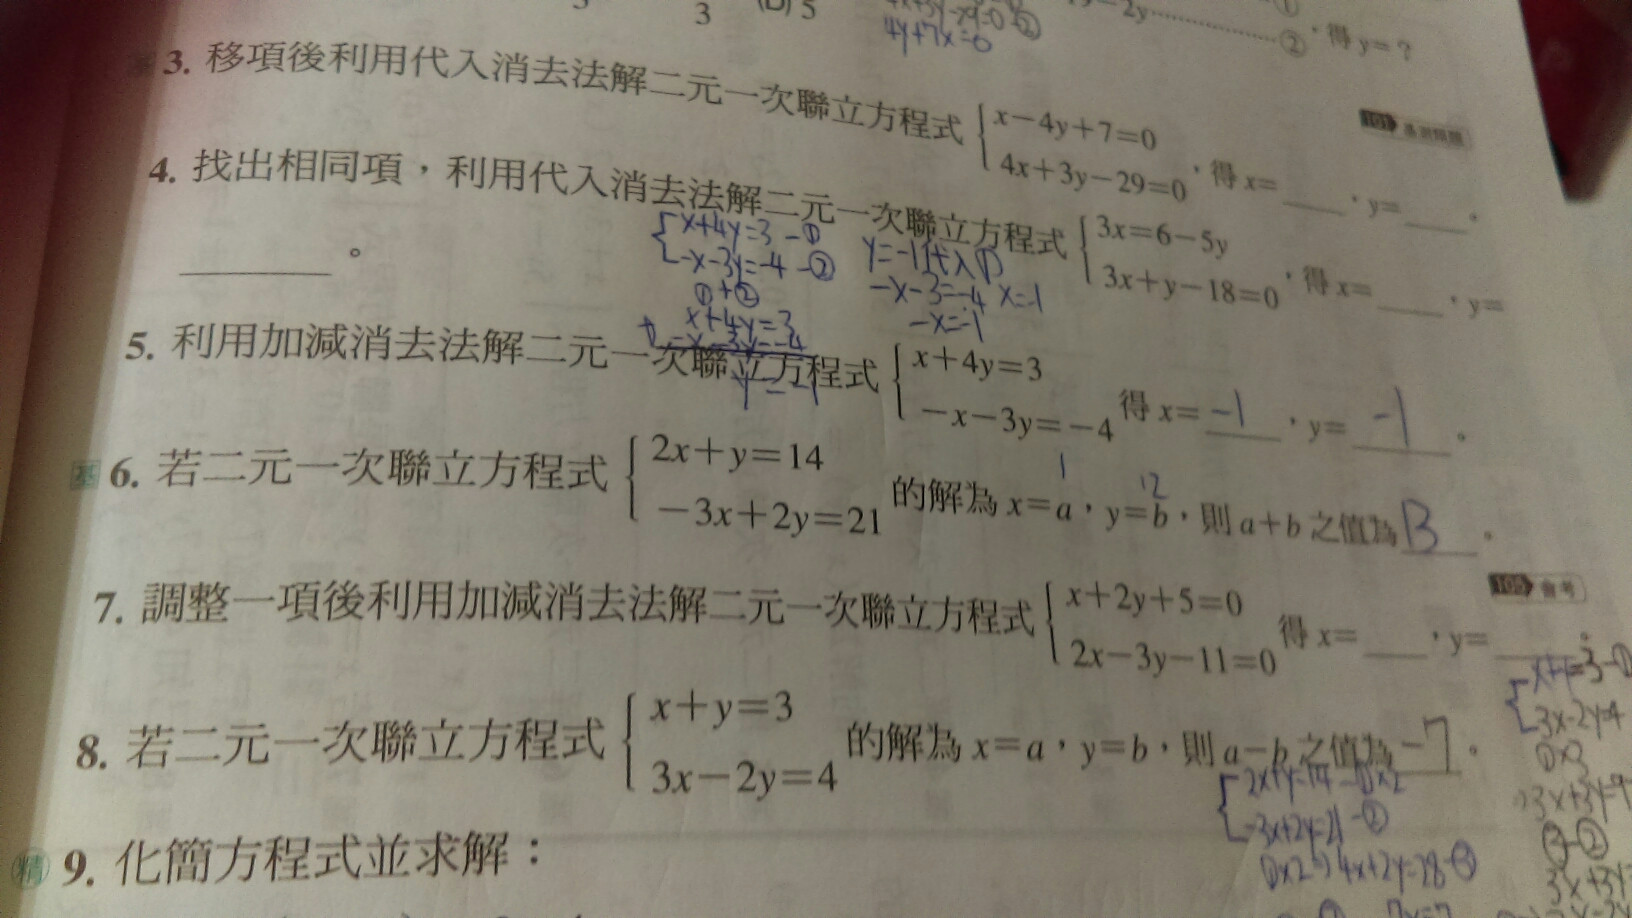 3
(D) 5
4y+7x=0
②，得 y=？
3. 移項後利用代入消去法解二元一次聯立方程式 x－4y＋7＝0
4x＋3y－29＝0 ，得 x＝____，y＝____。
4. 找出相同項，利用代入消去法解二元一次聯立方程式 3x＝6－5y
3x＋y－18＝0 ，得 x＝____，y＝
____。
x+4y=3 -①
-x-3y=-4 -②
①+②
x+4y=3
+ -x-3y=-4
y=-1
y=-1代入①
-x-3=-4 x=-1
-x=-1
5. 利用加減消去法解二元一次聯立方程式 x＋4y＝3
－x－3y＝－4 得 x＝-1，y＝-1。
基 6. 若二元一次聯立方程式 2x＋y＝14
－3x＋2y＝21 的解為 x＝a，y＝b，則 a＋b 之值為13。
1
12
105 會考
7. 調整一項後利用加減消去法解二元一次聯立方程式 x＋2y＋5＝0
2x－3y－11＝0 得 x＝____，y＝____。
8. 若二元一次聯立方程式 x＋y＝3
3x－2y＝4 的解為 x＝a，y＝b，則 a－b 之值為-7。
2x+y=14 -①x2
-3x+2y=21 -②
①x2⇒4x+2y=28-③
3x-2y=4
①x3
③-②
精 9. 化簡方程式並求解：